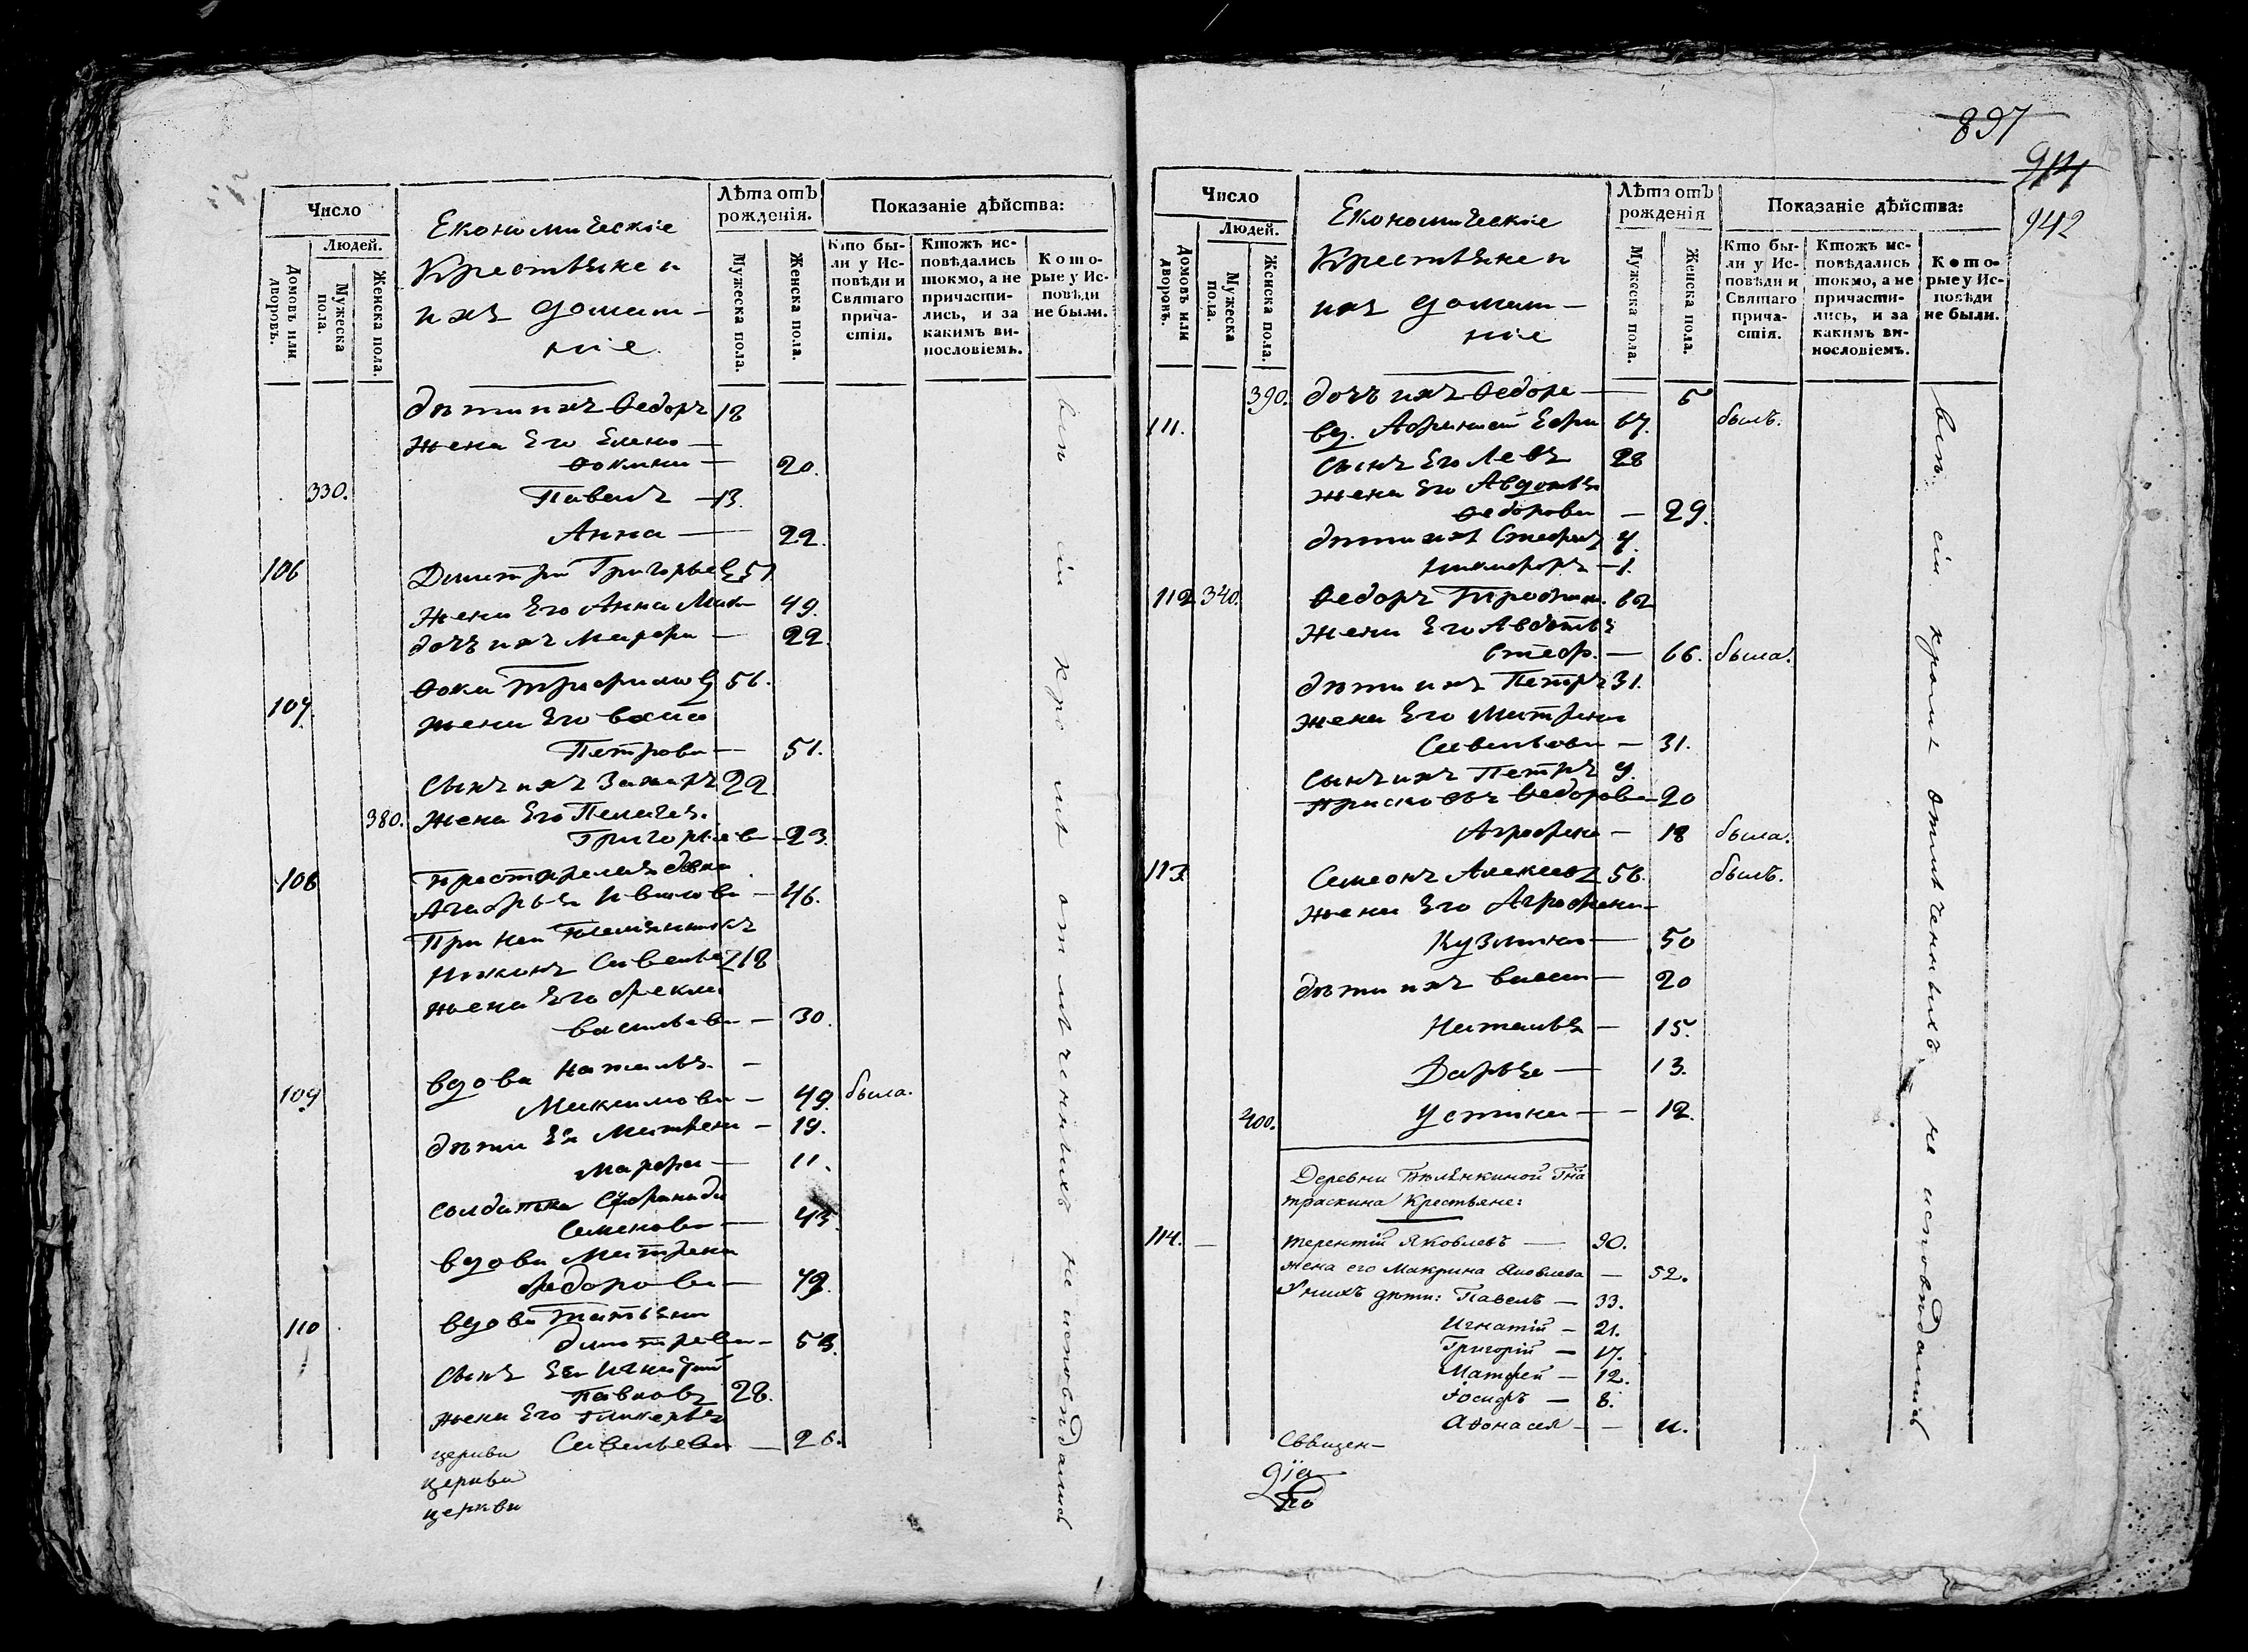 Число
Людей.
Домовъ или дворовъ.
Мужеска пола.
Женска пола.
Економическіе
Крестьяне и
ихъ домаш-
ніе.
Лѣта отъ рожденія.
Мужеска пола.
Женска пола.
Показаніе дѣйства:
Кто бы-
ли у Ис-
повѣди и
Святаго
прича-
стія.
Ктожъ ис-
повѣдались
токмо, а не
причасти-
лись, и за
какимъ ви-
нословіемъ.
Кото-
рые у Ис-
повѣди
не были.
дѣти ихъ Ѳедоръ 18
жена Его Елена —
Ѳокина — 20.
330. Павелъ — 13.
Анна — 22.
106 Димитри Григорьевъ 51
Жена Его Анна Мак — 49.
дочь ихъ Марфа — 22.
107. Ѳока Трофимовъ 56.
жена Его
Петрова — 51.
Сынъ ихъ Захаръ 22
380. жена Его Пелагея.
Григорьева — 23.
108 Престарелая девка
Агафья Иванова — 46.
При ней племянникъ
Савельевъ 18
жена Его Фекла
Васильева — 30.
вдова Наталья —
109 Максимова — 49. была.
дѣти Ея Матрена — 19.
Марфа — 11.
солдатка
Семенова — 43.
вдова Матрена
Федорова — 49.
110 вдова Татьяна
Димитрева — 53.
сынъ Ея Игнатий
Павловъ 28.
жена Его Гликерья
церкви Савельева — 26.
церкви
церкви
вси сіи кромѣ отмѣченныхъ не исповѣдались
897
914
942
Число
Людей.
Домовъ или дворовъ.
Мужеска пола.
Женска пола.
Економическіе
Крестьяне и
ихъ домаш-
ніе
Лѣта отъ рожденія
Мужеска пола.
Женска пола.
Показаніе дѣйства:
Кто бы-
ли у Ис-
повѣди и
Святаго
прича-
стія.
Ктожъ ис-
повѣдались
токмо, а не
причасти-
лись, и за
какимъ ви-
нословіемъ.
Кото-
рые у Ис-
повѣди
не были.
390. дочь ихъ Ѳедора — 5
111. вд. Ефри 67. былъ.
Сынъ Его Левъ 28
жена Его Авдотья
Ѳедорова — 29.
дѣти ихъ Стефанъ 4.
Никифоръ — 1.
112 340. Ѳедоръ Трофим. 62
жена Его Авдотья
Стеф. — 66. была.
дѣти ихъ Петръ 31.
жена Его Матрена
Савельева — 31.
Сынъ ихъ Петръ 9.
Ѳедорова — 20
Аграфена — 18 была.
113. Симеонъ Алексеевъ 56. былъ.
жена Его Аграфена —
Кузмина — 50
дѣти ихъ Васса — 20
Наталья — 15.
Дарья — 13.
400. Устина — 12.
Деревни Белянкиной
Крестьяне:
114. — Терентій Яковлевъ — 90.
жена его Макрина Яковлева — 52.
У нихъ дѣти: Павелъ — 33.
Игнатій — 21.
Григорій — 17.
Матфей — 12.
Іосифъ — 8.
Афонасея — 11.
Священ —
діа
По
вси сіи кромѣ отмѣченныхъ не исповѣдались